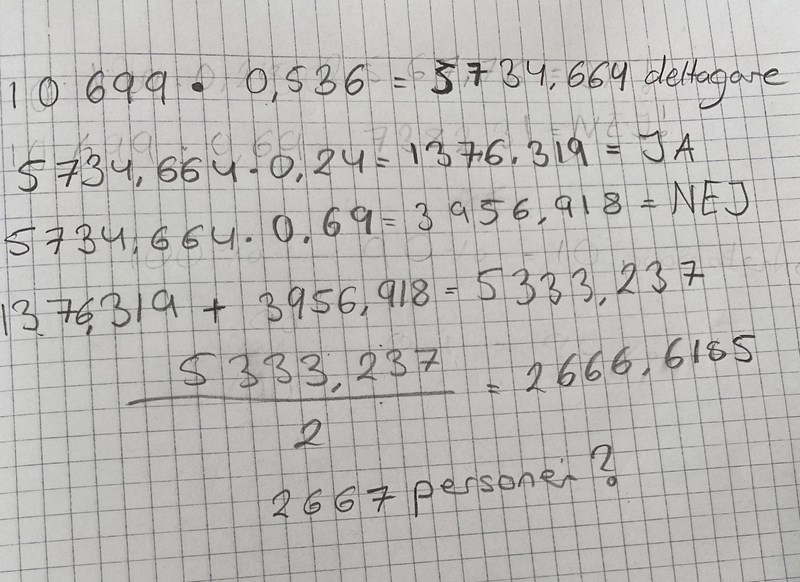 10 699 · 0,536 = 5734,664 deltagare
5734,664 · 0,24 = 1376,319 = JA
5734,664 · 0,69 = 3956,918 = NEJ
1376,319 + 3956,918 = 5333,237
5333,237 = 2666,6185
2
2667 personer?